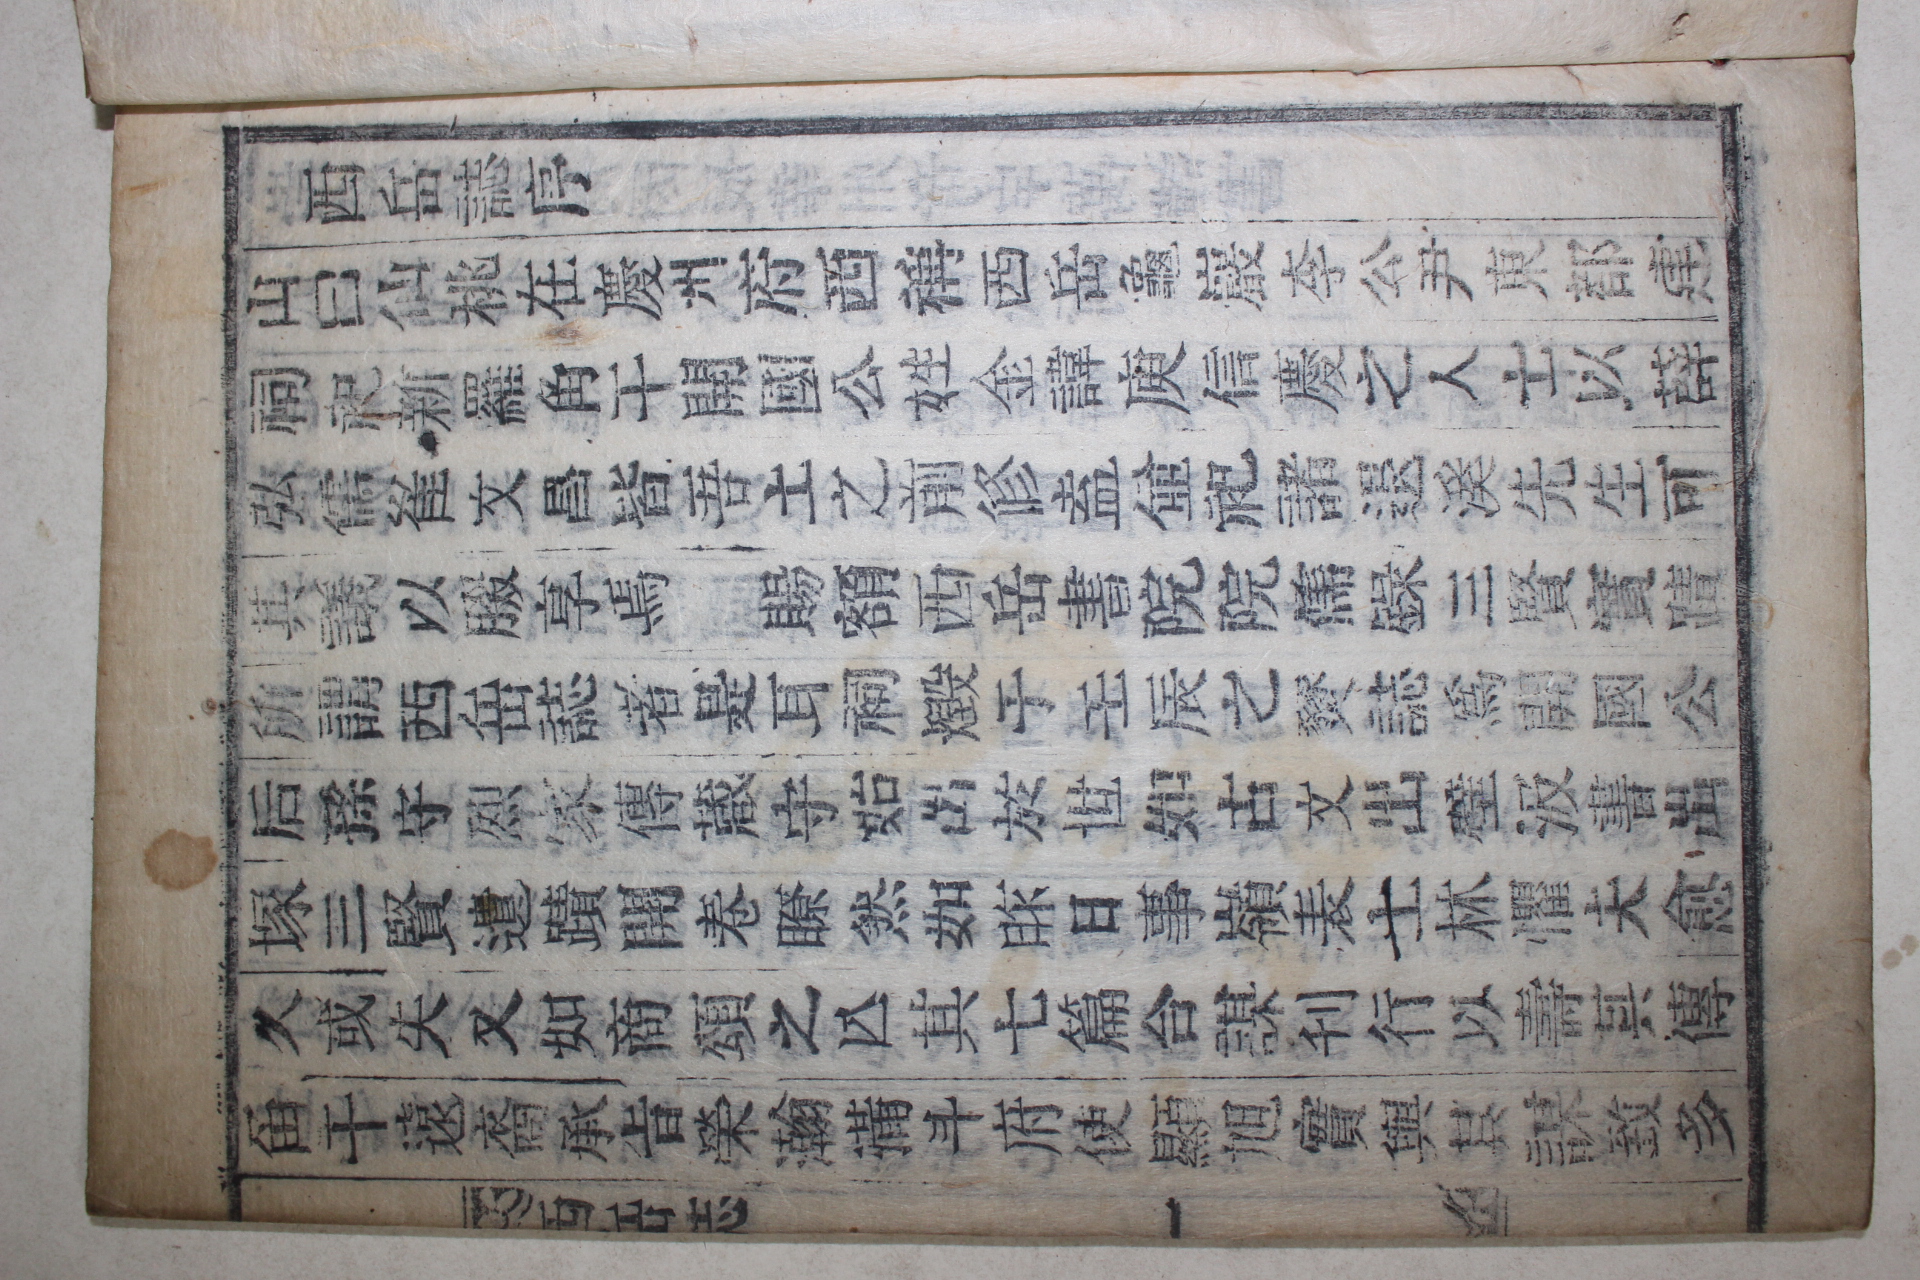 西岳誌序
山曰仙桃在慶州府西稱西岳龜巖李公尹東都建
祠祀新羅角干開國公姓金諱庾信慶之人士以薛
弘儒崔文昌皆吾土之前修盍並祀諸退溪先生可
其議以腏享焉 賜額西岳書院院儒錄三賢實蹟
所謂西岳誌者是耳祠燬于壬辰之燹誌爲開國公
后孫守烈家傳藏守始出於世如古文出壁汲書出
塚三賢遺蹟開卷瞭然如昨日事嶺表士林懼夫愈
久或失又如商頌之亾其七篇合謀刊行以壽其傳
角干遠裔承旨榮瀚滿斗府使顯旭實與其謀致多
西岳誌
一